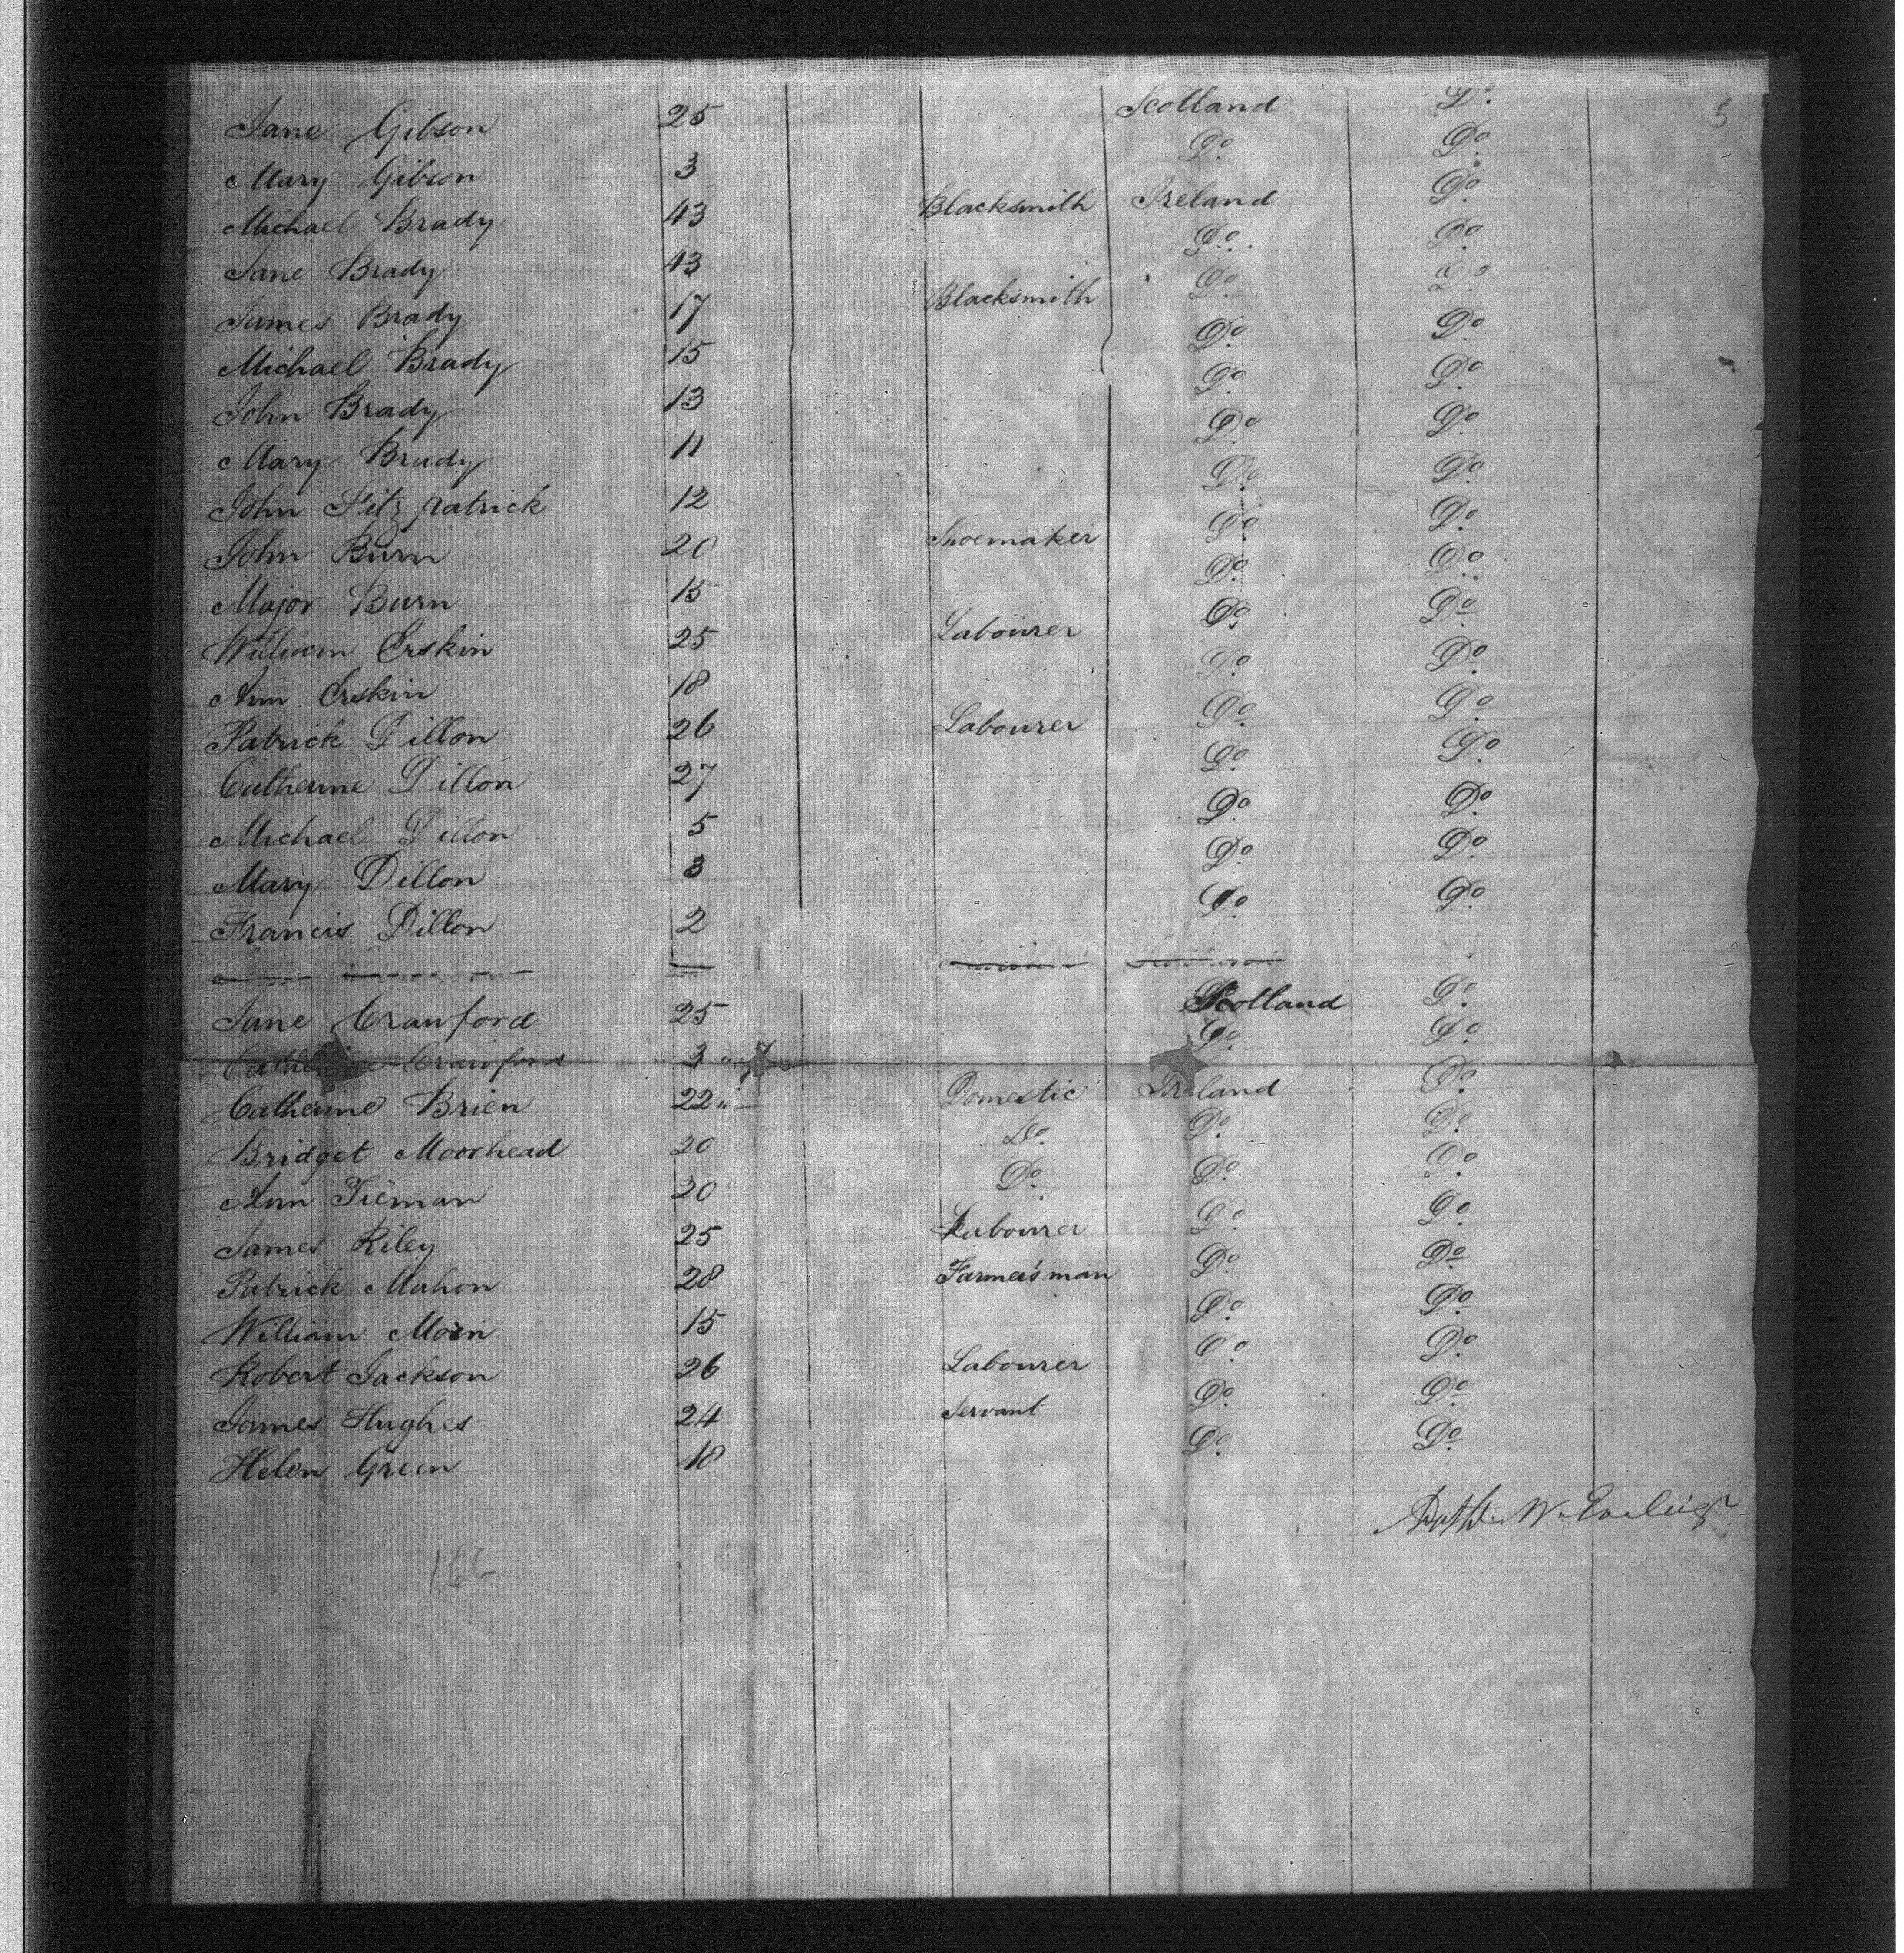 5
Jane Gibson 25 Scotland Do.
Mary Gibson 3 Do. Do.
Michael Brady 43 Blacksmith Ireland Do.
Jane Brady 43 Do. Do.
James Brady 17 Blacksmith Do. Do.
Michael Brady 15 Do. Do.
John Brady 13 Do. Do.
Mary Brady 11 Do. Do.
John Fitzpatrick 12 Do. Do.
John Burn 20 Shoemaker Do. Do.
Major Burn 15 Do. Do.
William Erskin 25 Labourer Do. Do.
Ann Erskin 18 Do. Do.
Patrick Dillon 26 Labourer Do. Do.
Catherine Dillon 27 Do. Do.
Michael Dillon 5 Do. Do.
Mary Dillon 3 Do. Do.
Francis Dillon 2 Do. Do.
Jane Crawford 25 Scotland Do.
Crawford 3 Do. Do.
Catherine Brien 22 Domestic Ireland Do.
Bridget Moorhead 20 Do. Do. Do.
Ann Tieman 20 Do. Do. Do.
James Riley 25 Labourer Do. Do.
Patrick Mahon 28 Farmer's man Do. Do.
William 15 Do. Do.
Robert Jackson 26 Labourer Do. Do.
James Hughes 24 Servant Do. Do.
Helen Green 18 Do. Do.
166